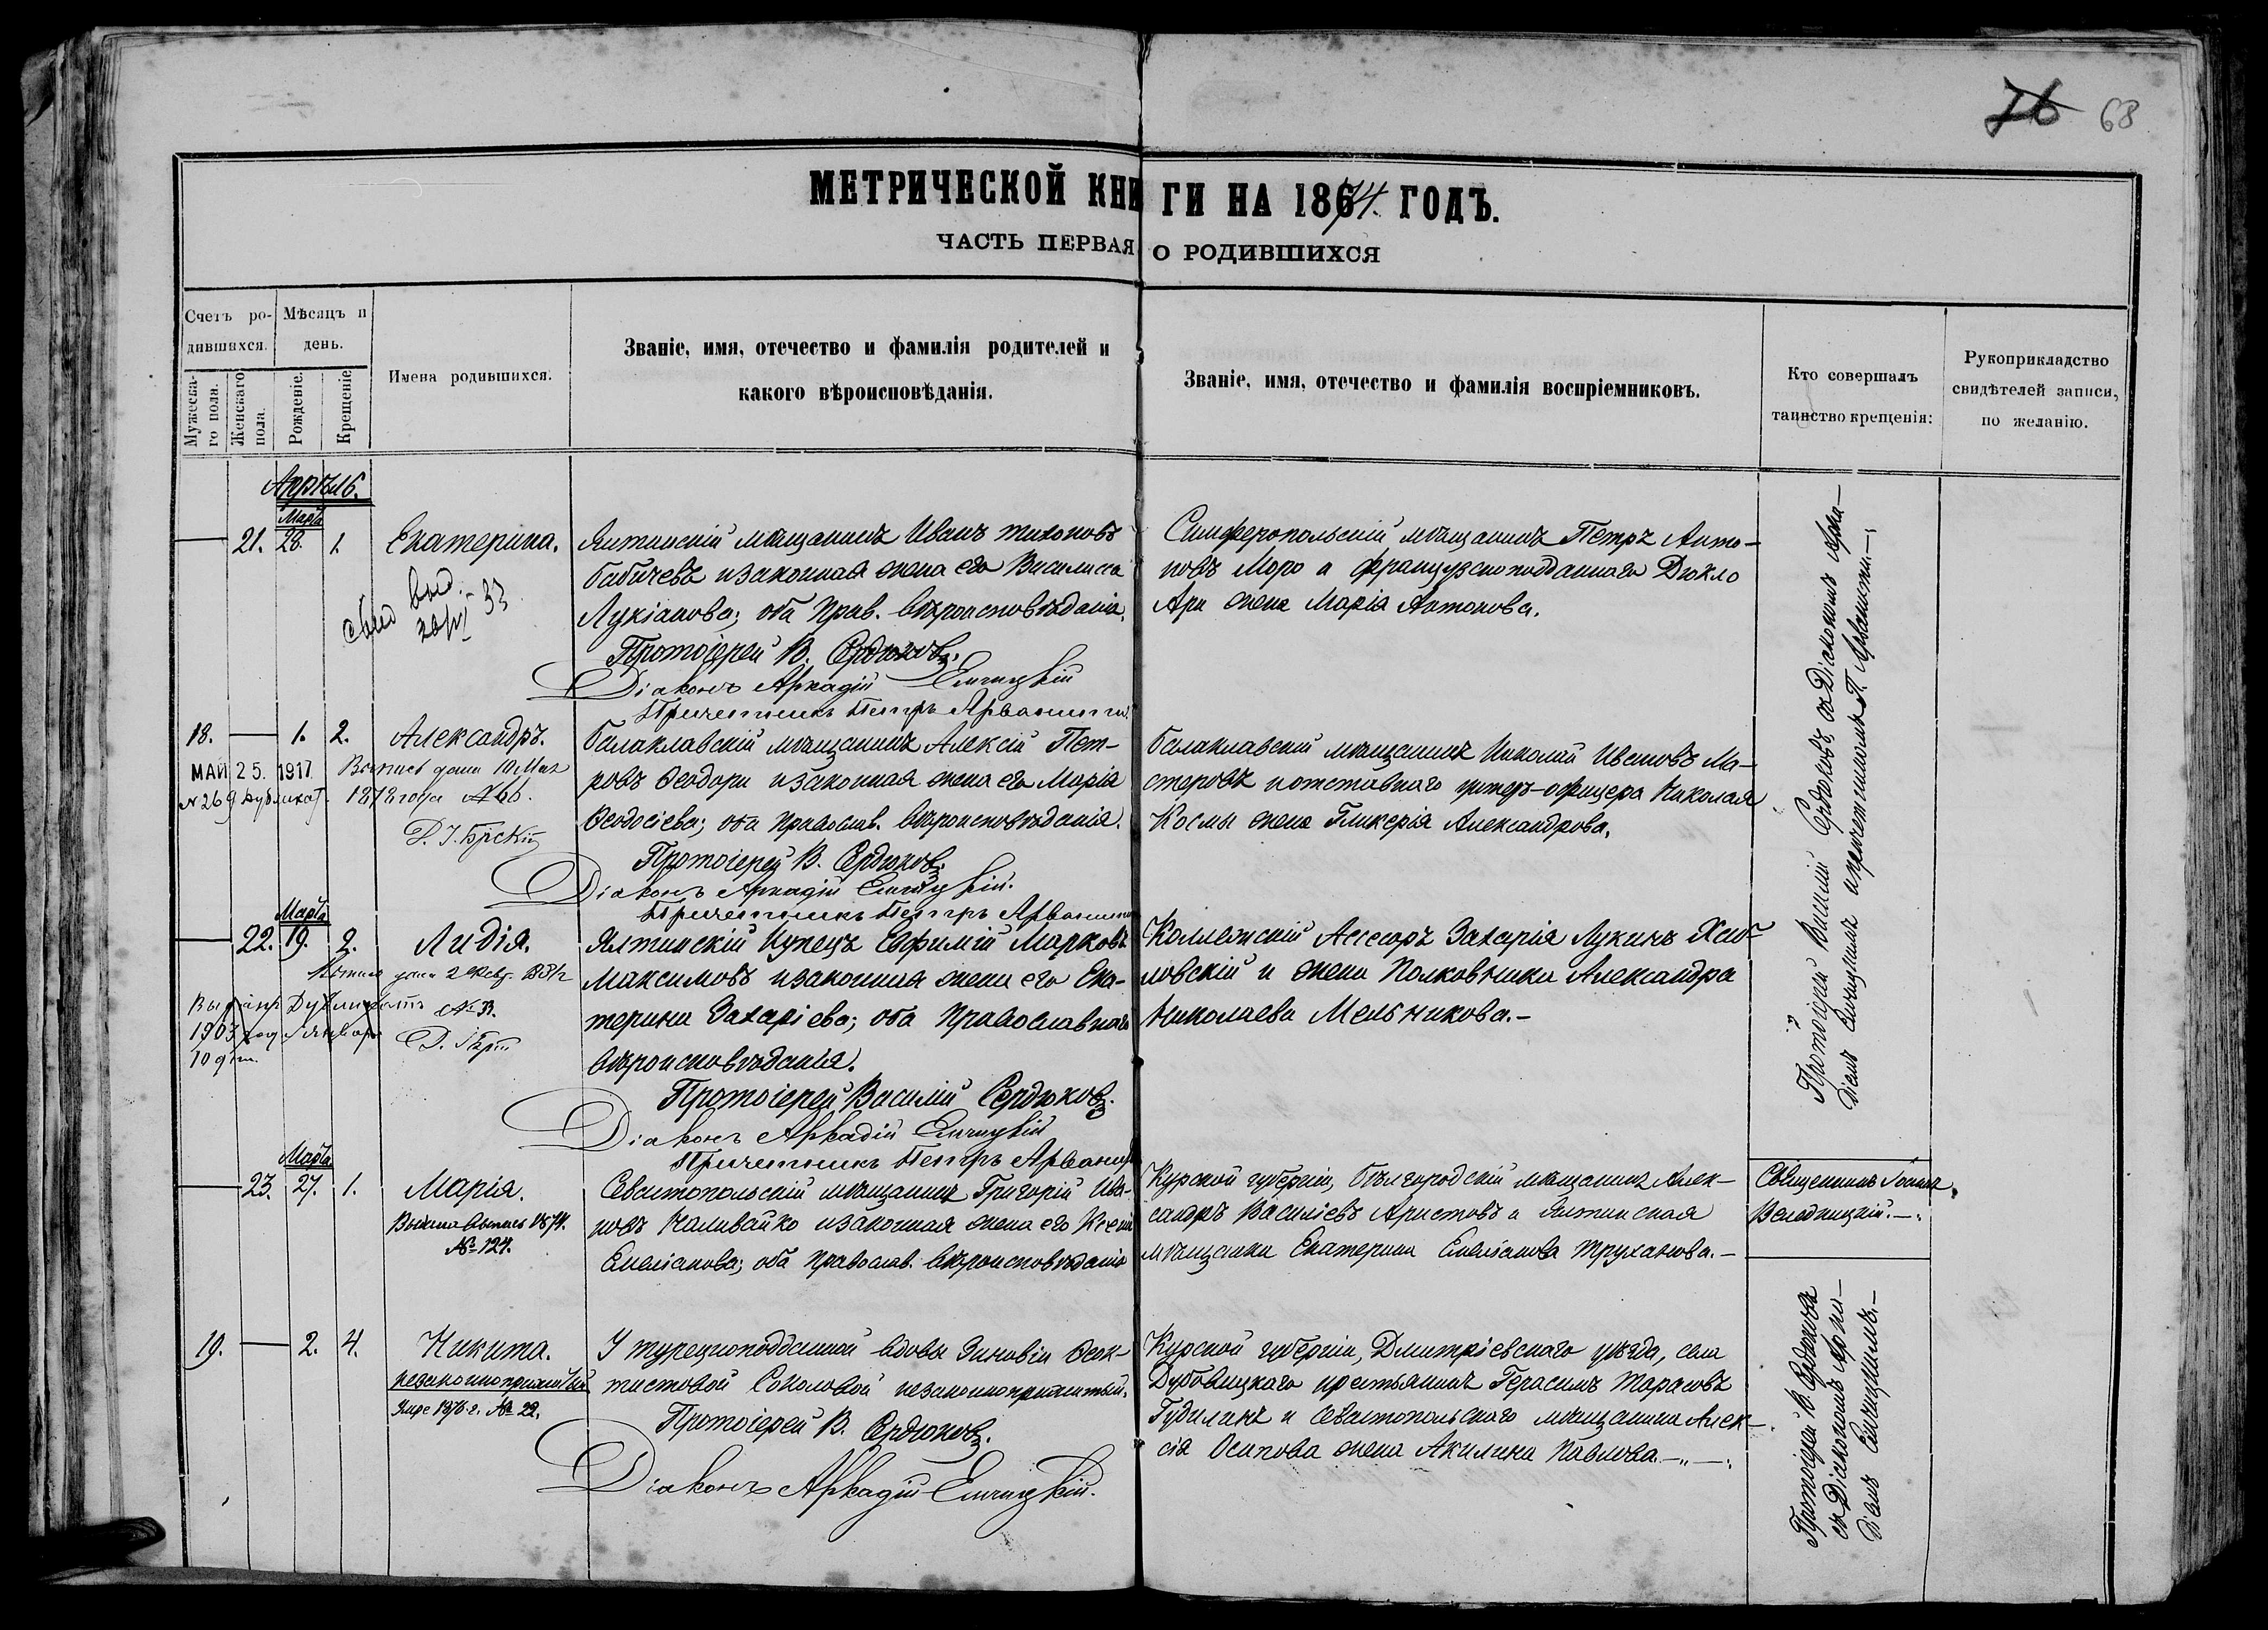 76 68
МЕТРИЧЕСКОЙ КНИГИ НА 1874. ГОДЪ.
ЧАСТЬ ПЕРВАЯ О РОДИВШИХСЯ
Счетъ ро-
дившихся.
Мѣсяцъ и
день.
Мужеска-
го пола.
Женскаго
пола.
Рожденіе.
Крещеніе
Имена родившихся.
Званіе, имя, отечество и фамилія родителей и
какого вѣроисповѣданія.
Званіе, имя, отечество и фамилія воспріемниковъ.
Кто совершалъ
таинство крещенія:
Рукоприкладство
свидѣтелей записи,
по желанію.
Апрѣль.
Марта
21. 28. 1. Екатерина.
Ялтинскій мѣщанинъ Иванъ Тихоновъ
Бабичевъ и законная жена его Василисса
Лукіанова; оба прав. вѣроисповѣданія.
Протоіерей В. Сердюковъ.
Діаконъ Аркадій
Причетникъ Петръ Арванити
Симферопольскій мѣщанинъ Петръ Анто-
новъ Моро и французскоподданнаго Дюкло
Ари жена Марія Антонова.
Протоіерей Василій Сердюковъ, съ Діакономъ Арка-
діемъ и причетникомъ П. Арванити.
18. 1. 2. Александръ.
МАЙ 25. 1917
№ 269 Дубликат.
Выпись дана 10 Мая
1878 года № 66.
Балаклавскій мѣщанинъ Алексій Пет-
ровъ Ѳеодори и законная жена его Марія
Ѳеодосіева; оба православ. вѣроисповѣданія.
Протоіерей В. Сердюковъ.
Діаконъ Аркадій
Причетникъ Петръ Арванити
Балаклавскій мѣщанинъ Николай Ивановъ Ма-
стеровъ и отставнаго унтеръ-офицера Николая
Космы жена Гликерія Александрова.
Марта
22. 19. 2. Лидія.
Выданъ Дубликатъ
1903 год Января
10 дня.
Ялтинскій купецъ Евфимій Марковъ
Максимовъ и законная жена его Ека-
терина Захаріева; оба Православнаго
вѣроисповѣданія.
Протоіерей Василій Сердюковъ.
Діаконъ Аркадій
Причетникъ Петръ Арванити
Коллежскій Ассесоръ Захарія Лукинъ
ловскій и жена Полковника Александра
Николаева Мельникова.-
Марта
23. 27. 1. Марія.
Выдана выпись 1874.
№ 124.
Севастопольскій мѣщанинъ Григорій Ива-
новъ Наливайко и законная жена его Ксенія
Емеліанова; оба православ. вѣроисповѣданія
Курской губерніи, бѣлгородскій мѣщанинъ Алек-
сандръ Василіевъ Аристовъ и Ялтинская
мѣщанка Екатерина Емеліанова Труханова.-
Священникъ Іоаннъ
19. 2. 4. Никита.
незаконноприжитый
1876 г. № 22.
У турецкоподданной вдовы Зиновіи Ѳеок-
тистовой Соколовой незаконноприжитый.
Протоіерей В. Сердюковъ.
Діаконъ Аркадій
Курской губерніи, Дмитріевскаго уѣзда, села
Дубовицкаго крестьянинъ Герасимъ Тарасовъ
Гудилинъ и Севастопольскаго мѣщанина Алек-
сія Осипова жена Акилина Павлова.
Протоіерей В. Сердюковъ
съ Діакономъ Арка-
діемъ